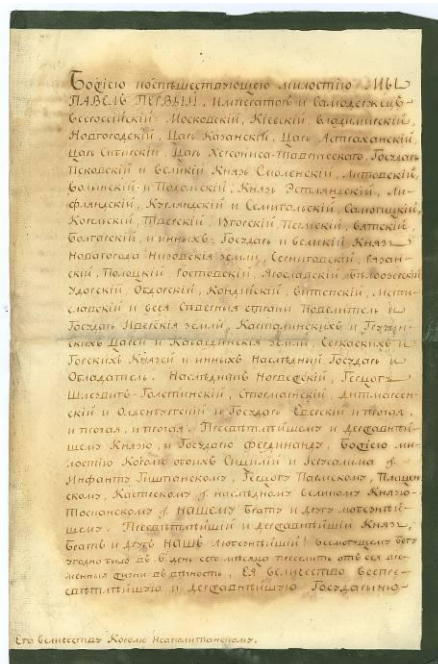 Божіею поспѣшествующею милостію МЫ
ПАВЕЛЪ ПЕРВЫЙ, Императоръ и Самодержецъ
Всероссійскій: Московскій, Кіевскій, Владимірскій,
Новгородскій, Царь Казанскій, Царь Астраханскій,
Царь Сибирскій, Царь Херсониса-Таврическаго, Государь
Псковскій и Великій Князь Смоленскій, Литовскій,
Волынскій и Подольскій, Князь Эстляндскій, Ли-
фляндскій, Курляндскій и Семигальскій, Самогицкій,
Корельскій, Тверскій, Югорскій, Пермскій, Вятскій,
Болгарскій, и иныхъ; Государь и великій Князь
Новагорода Низовскія земли, Черниговскій, Рязан-
скій, Полоцкій, Ростовскій, Ярославскій, Бѣлоозерскій,
Удорскій, Обдорскій, Кондійскій, Витепскій, Мсти-
славскій и всея Сѣверныя страны Повелитель и
Государь Иверскія земли, Карталинскихъ и Грузин-
скихъ Царей и Кабардинскія земли, Черкаскихъ и
Горскихъ Князей и иныхъ Наслѣдный Государь и
Обладатель. Наслѣдникъ Норвежскій, Герцогъ
Шлезвигъ-Голстинскій, Стормарнскій, Дитмарсен-
скій и Олденбургскій и Государь Еверскій и прочая,
и прочая, и прочая. Пресвѣтлѣйшему и державнѣй-
шему Князю, и Государю Фердинанду, Божіею ми-
лостію Королю обоихъ Сицилій и Іерусалима
Инфанту Гишпанскому, Герцогу Пармскому, Плацен-
скому, Кастрскому наслѣдному Великому Князю
Тосканскому НАШЕМУ Брату и другу любезнѣй-
шему. Пресвѣтлѣйшій и державнѣйшій Князь,
Братъ и другъ НАШЪ любезнѣйшій! Всемогущему богу
угодно было въ день сего мѣсяца преселить отъ сея вре-
менныя жизни въ вѣчность, Ея величество Всепре-
свѣтлѣйшую и державнѣйшую Государыню
Его величеству Королю Неаполитанскому.